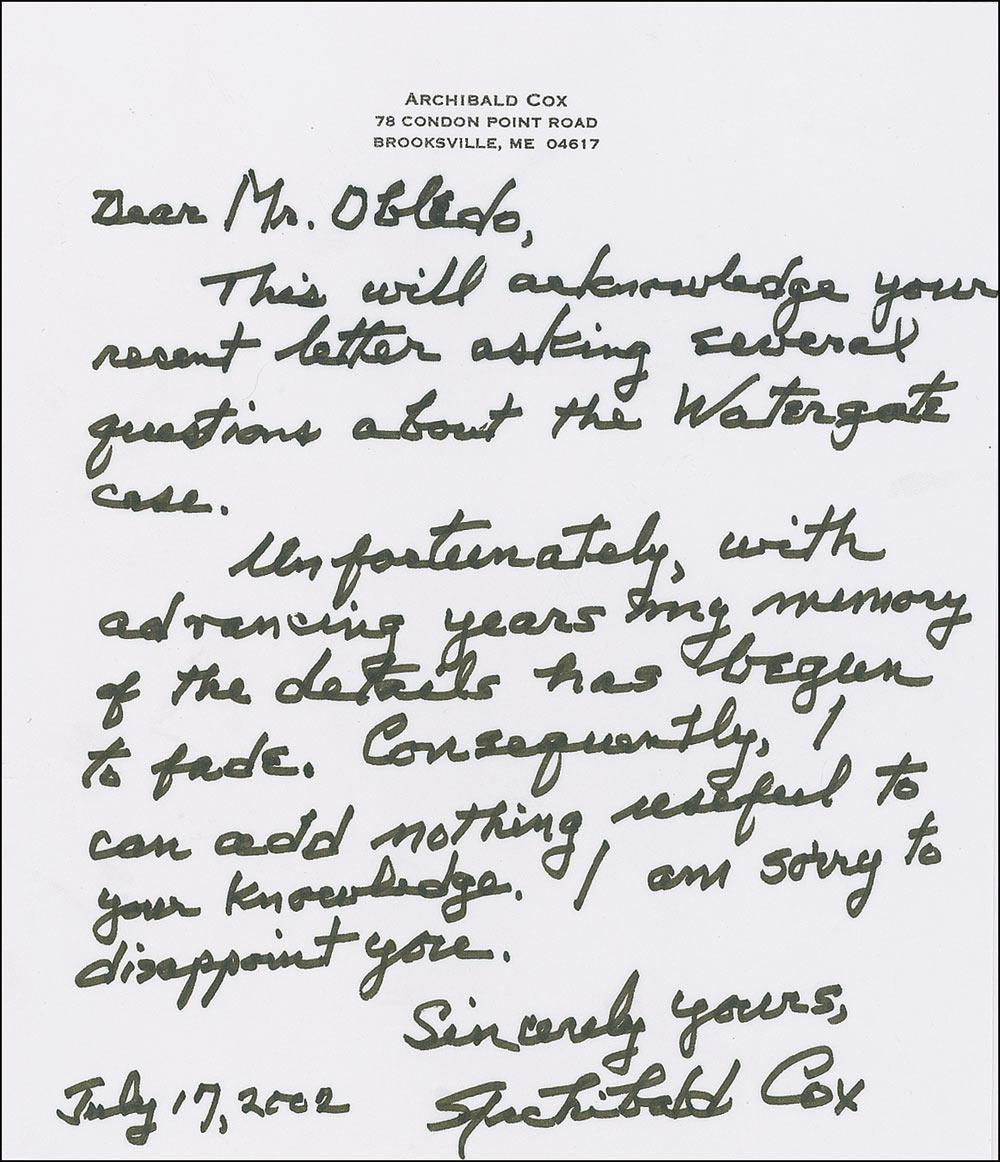 ARCHIBALD COX
78 CONDON POINT ROAD
BROOKSVILLE, ME 04617
Dear Mr. Obledo,
This will acknowledge your
recent letter asking several
questions about the Watergate
case.
Unfortunately, with
advancing years my memory
of the details has begun
to fade. Consequently, I
can add nothing useful to
your knowledge. I am sorry to
disappoint you.
Sincerely yours,
Archibald Cox
July 17, 2002